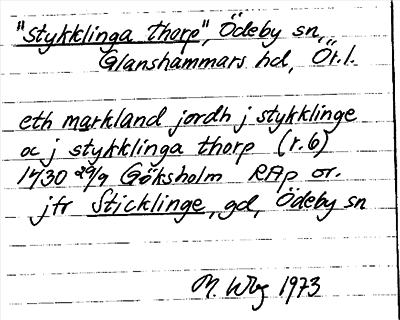 "stykklinga thorp", Ödeby sn,
Glanshammars hd, Ör.l.
eth markland jordh j stykklinge
oc j stykklinga thorp (r. 6)
1430 29/9 Göksholm RAp or.
jfr Sticklinge, gd, Ödeby sn
M. Wbg 1973